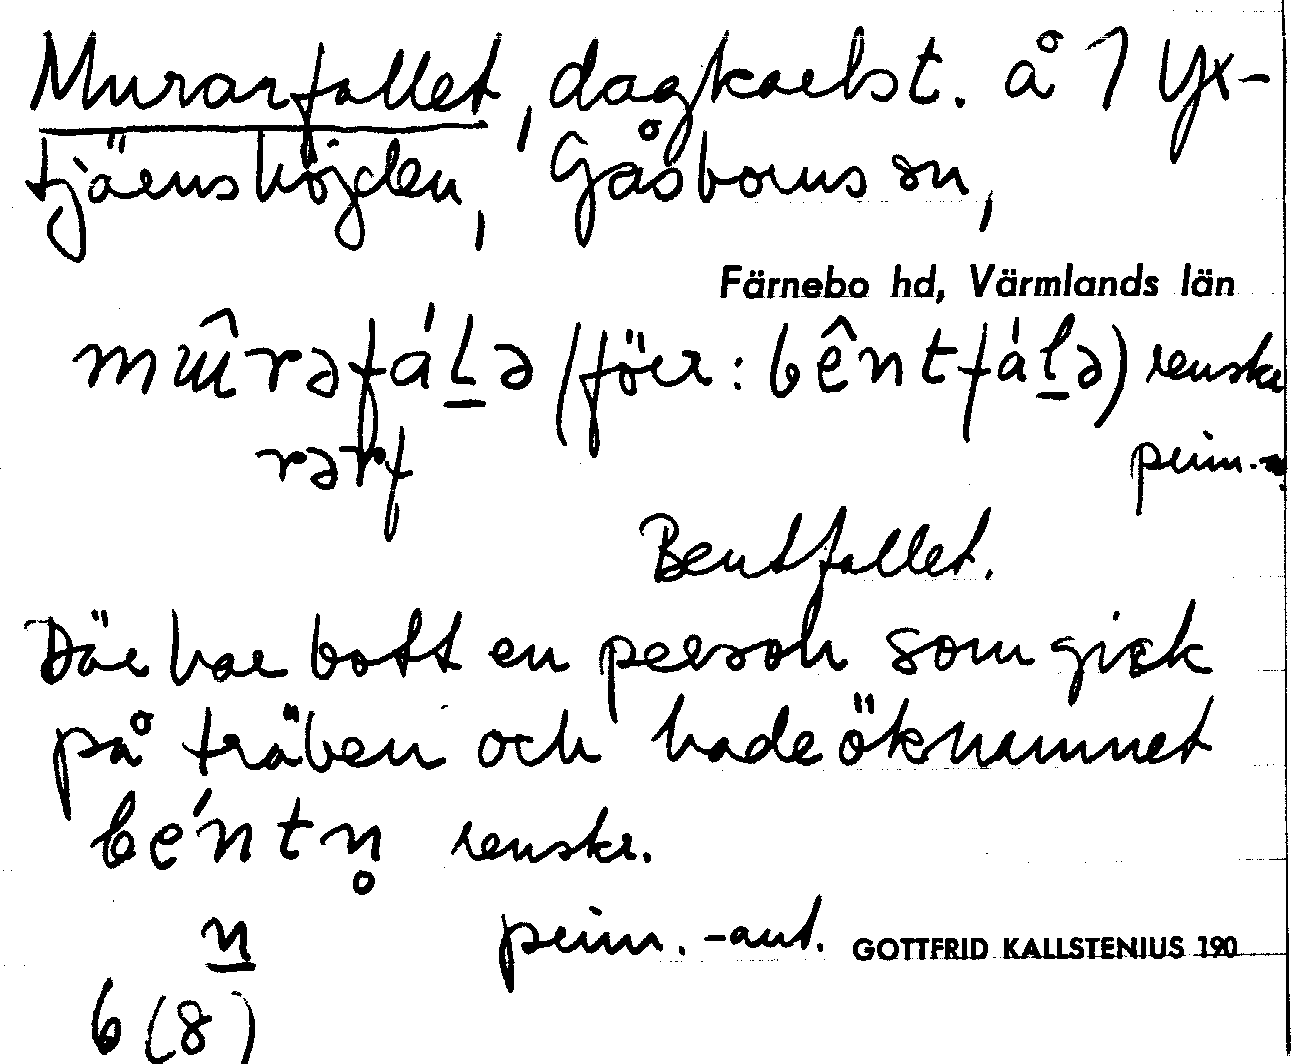 Murarfallet, dagkarlst. å 1 Yx-
tjärnshöjden, Gåsborns sn,
Färnebo hd, Värmlands län
mɯ̂rəfáḻə (förr: bêntfáḻə) renskr.
rərf prim.-
Bentfallet.
Där har bott en person som gick
på träben och hade öknamnet
béntn̥ renskr.
ṉ prim.-ant. GOTTFRID KALLSTENIUS 190
6 (8)